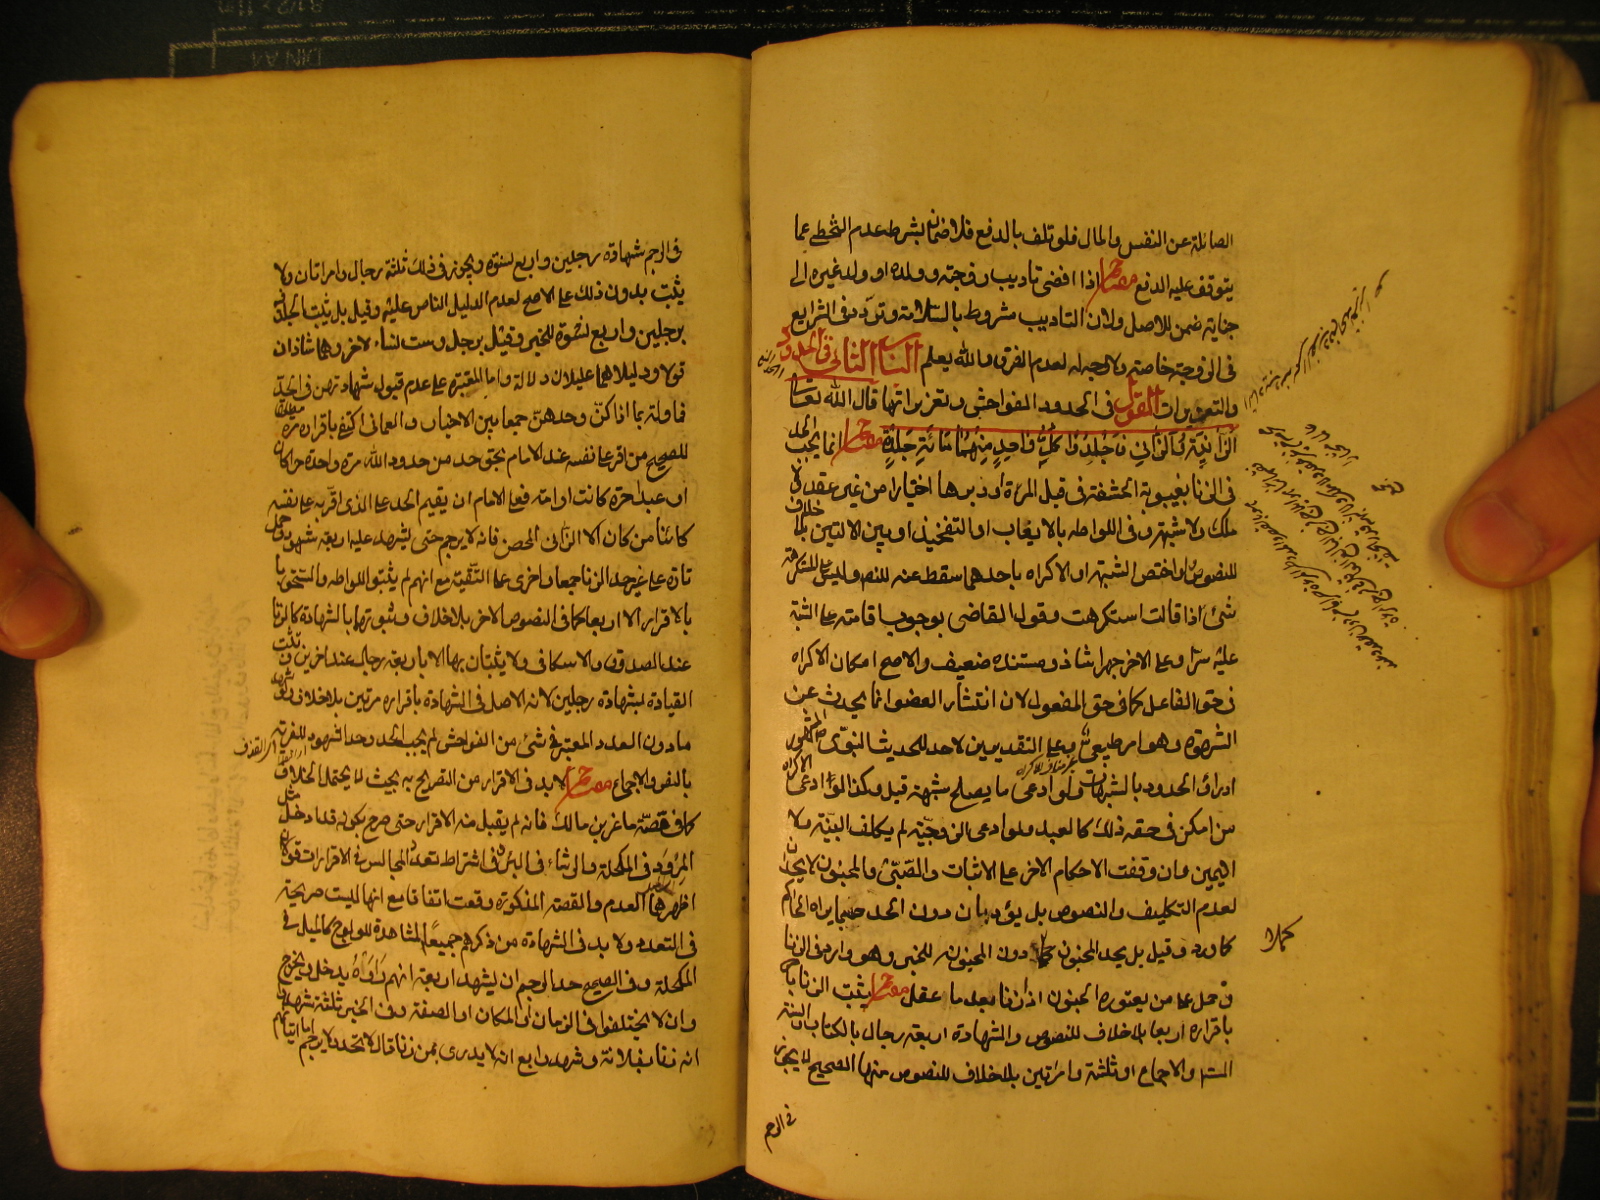 الصائلة عن النفس والمال فلو تلف بالدفع فلا ضمان بشرط عدم التخطى عما
يتوقف عليه الدفع مفتاح اذا افضى تاديب زوجته وولده او ولد غيره الى
جناية ضمن للاصل ولان التاديب مشروط بالسلامة وتردد فى الشرايع
فى الزوجة خاصة ولا وجه له لعدم الفرق والله يعلم الباب الثانى فى الحدود
والتعزيرات القول فى الحدود الفواحش وتعزيراتها قال الله تعالى
الزانية والزانى فاجلدوا كل واحد منهما مائة جلدة مفتاح انما يجب الحد
فى الزنا بغيبوبة الحشفة فى قبل المراة او دبرها اختيارا من غير عقد ولا
ملك ولا شبهة وفى اللواط بالايقاب او التفخيذ او بين الاليتين بلا خلاف
للنصوص ولو اختص الشبهة او الاكراه باحدهما سقط عنه للنص وليس على المستكرهة
شئ اذا قالت استكرهت وقول القاضى بوجوب اقامته على المشتبه
عليه سرا وعلى الاخر جهرا شاذ ومستنده ضعيف والاصح امكان الاكراه
فى حق الفاعل كما فى حق المفعول لان انتشار العضو انما يحدث عن
الشهوة وهو امر طبيعى وعلى التقديرين لا حد للحديث النبوى المشهور
ادراؤا الحدود بالشبهات ولو ادعى ما يصلح شبهة قبل وكذا لو ادعى الاكراه
من امكن فى حقه ذلك كالعبد ولو ادعى الزوجية لم يكلف البينة ولا
اليمين وان وقفت الاحكام الاخر على الاثبات والصبى والمجنون لا يحدان
لعدم التكليف والنصوص بل يؤدبان دون الحد حسبما يراه الحاكم
كما ورد وقيل بل يحد المجنون دون المجنونة للخبر وهو وارد فى الزنا
وحمل على من يعتوره الجنون اذا زنا بعد ما عقل مفتاح يثبت الزنا
باقراره اربعا بلا خلاف للنصوص والشهادة اربعة رجال بالكتاب والسنة
والاجماع او ثلثة وامراتين بلا خلاف للنصوص منها الصحيح لا يجوز
فى الرجم
كملا
فى الرجم شهادة رجلين واربع نسوة ويجوز فى ذلك ثلثة رجال وامراتان ولا
يثبت بدون ذلك على الاصح لعدم الدليل الناص عليه وقيل بل يثبت الجلد
برجلين واربع نسوة للخبر وقيل برجل وست نساء لاخر وهما شاذان
قولا ودليلاهما عليلان دلالة واما المعتبرة على عدم قبول شهادتهن فى الحد
فماولة بما اذا كن وحدهن جمعا بين الاخبار والعمانى اكتفى باقراره مرة مطلقا
للصحيح من اقر على نفسه عند الامام بحق حد من حدود الله مرة واحدة حرا كان
او عبدا حرة كانت او امة فعلى الامام ان يقيم الحد على الذى اقر به على نفسه
كائنا من كان الا الزانى المحصن فانه لا يرجم حتى يشهد عليه اربعة شهود وحمل
تارة على غير حد الزنا جمعا واخرى على التقية مع انهم لم يثبتوا اللواط والسحق
بالاقرار الا اربعا كما فى النصوص الاخر بلا خلاف وثبوتها بالشهادة كالزنا
عند الصدوق والاسكافى ولا يثبتان بها الا باربعة رجال عند اخرين وتثبت
القيادة بشهادة رجلين لانه الاصل فى الشهادة باقراره مرتين بلا خلاف ولو شهد
ما دون العدد المعتبر فى شئ من الفواحش لم يجب الحد وحد الشهود للفرية
بالنص والاجماع مفتاح لا بد فى الاقرار من التصريح به بحيث لا يحتمل الخلاف
كما فى قصة ماعز بن مالك فانه لم يقبل منه الاقرار حتى صرح بكونه قد ادخل مثل
المرود فى المكحلة والرشاء فى البئر وفى اشتراط تعدد المجالس فى الاقرارات قولان
اظهرهما العدم والقصة المذكورة وقعت اتفاقا مع انها ليست صريحة
فى التعدد ولا بد فى الشهادة من ذكرهم جميعا المشاهدة للولوج كالميل فى
المكحلة وفى الصحيح حد الرجم ان يشهد اربعة انهم راوه يدخل ويخرج
وان لا يختلفوا فى الزمان او المكان او الصفة وفى الخبر ثلثة شهدوا
انه زنا بفلانة وشهد رابع انه لا يدرى بمن زنا قال لا تحد ولا يرجم